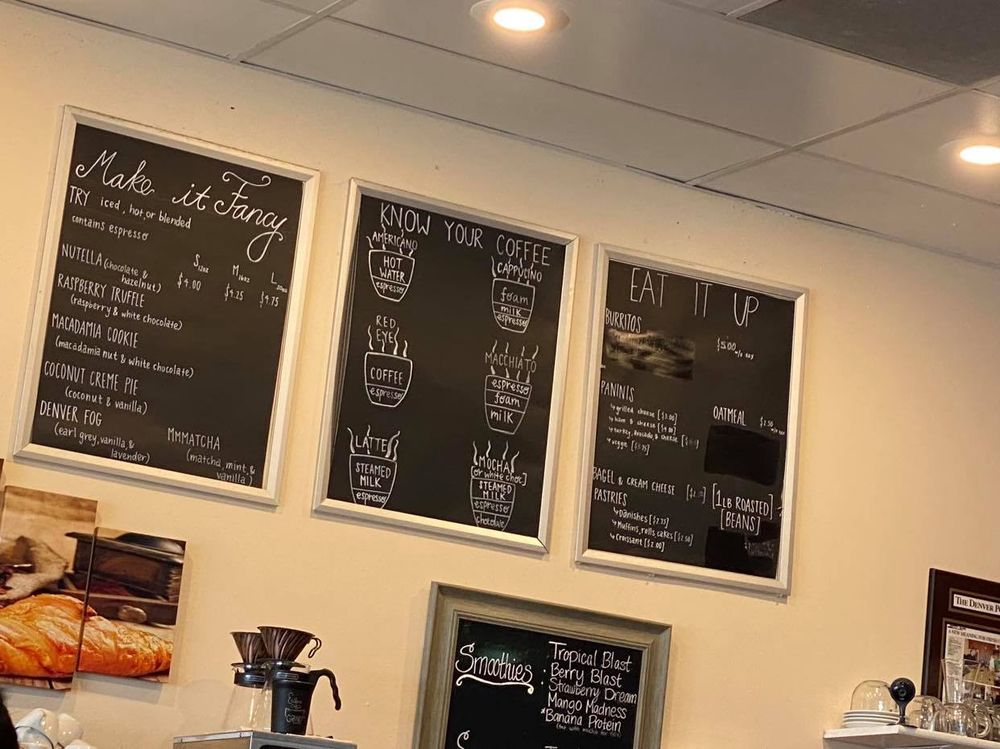 Make it Fancy
TRY iced, hot, or blended
contains espresso
S 12oz M 16oz L
NUTELLA (chocolate & hazelnut) $4.00 $4.25 $4.75
RASPBERRY TRUFFLE
(raspberry & white chocolate)
MACADAMIA COOKIE
(macadamia nut & white chocolate)
COCONUT CREME PIE
(coconut & vanilla)
DENVER FOG
(earl grey, vanilla, &
lavender)
MMMATCHA
(matcha, mint, &
vanilla)
KNOW YOUR COFFEE
AMERICANO
HOT
WATER
espresso
CAPPUCINO
foam
milk
espresso
RED
EYE
COFFEE
espresso
MACCHIATO
espresso
foam
milk
LATTE
STEAMED
MILK
espresso
MOCHA
[or white choc.]
STEAMED
MILK
espresso
chocolate
EAT IT UP
BURRITOS $5.00
PANINIS
↳grilled cheese
↳ham & cheese
↳turkey, avocado, & cheese
↳veggie
OATMEAL $2.50
BAGEL & CREAM CHEESE
PASTRIES
↳Danishes [$2.75]
↳Muffins, rolls, cakes [$2.50]
↳Croissant [$2.00]
[1LB ROASTED]
[BEANS]
Smoothies
Tropical Blast
Berry Blast
Strawberry Dream
Mango Madness
*Banana Protein
THE DENVER